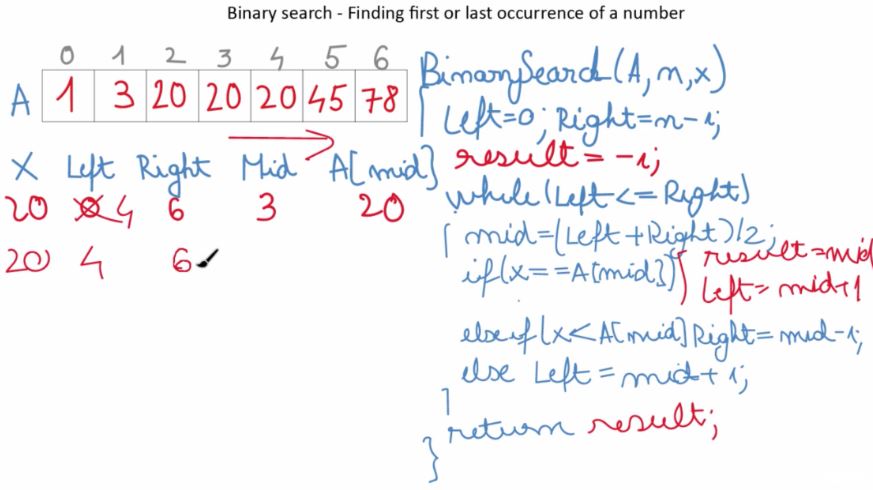 Binary search - Finding first or last occurrence of a number
0 1 2 3 4 5 6
A 1 3 20 20 20 45 78
X Left Right Mid A[mid]
20 0 4 6 3 20
20 4 6
BinarySearch(A,n,x)
{ Left=0; Right=n-1;
result=-1;
while(Left<=Right)
{ mid=(Left+Right)/2;
if(x==A[mid]) { result=mid
left=mid+1
elseif(x<A[mid]Right=mid-1;
else Left=mid+1;
}
return result;
}